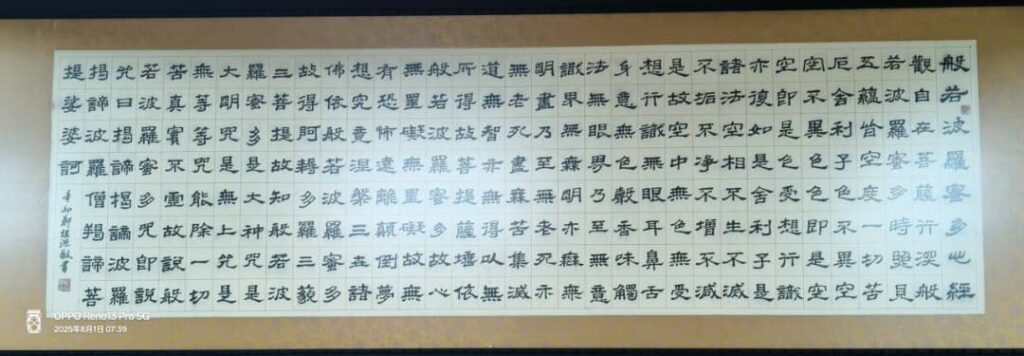 般若波羅蜜多心經
觀自在菩薩行深般
若波羅蜜多時照見
五蘊皆空度一切苦
厄舍利子色不異空
空不異色色即是空
空即是色受想行識
亦復如是舍利子是
諸法空相不生不滅
不垢不淨不增不減
是故空中無色無受
想行識無眼耳鼻舌
身意無色聲香味觸
法無眼界乃至無意
識界無無明亦無無
明盡乃至無老死亦
無老死盡無苦集滅
道無智亦無得以無
所得故菩提薩埵依
般若波羅蜜多故心
無罣礙無罣礙故無
有恐怖遠離顛倒夢
想究竟涅槃三世諸
佛依般若波羅蜜多
故得阿耨多羅三藐
三菩提故知般若波
羅蜜多是大神咒是
大明咒是無上咒是
無等等咒能除一切
苦真實不虛故說般
若波羅蜜多咒即說
咒曰揭諦揭諦波羅
揭諦波羅僧羯諦菩
提娑婆訶
辛卯鄭源敬書
OPPO Reno13 Pro 5G
2025年8月1日 07:39